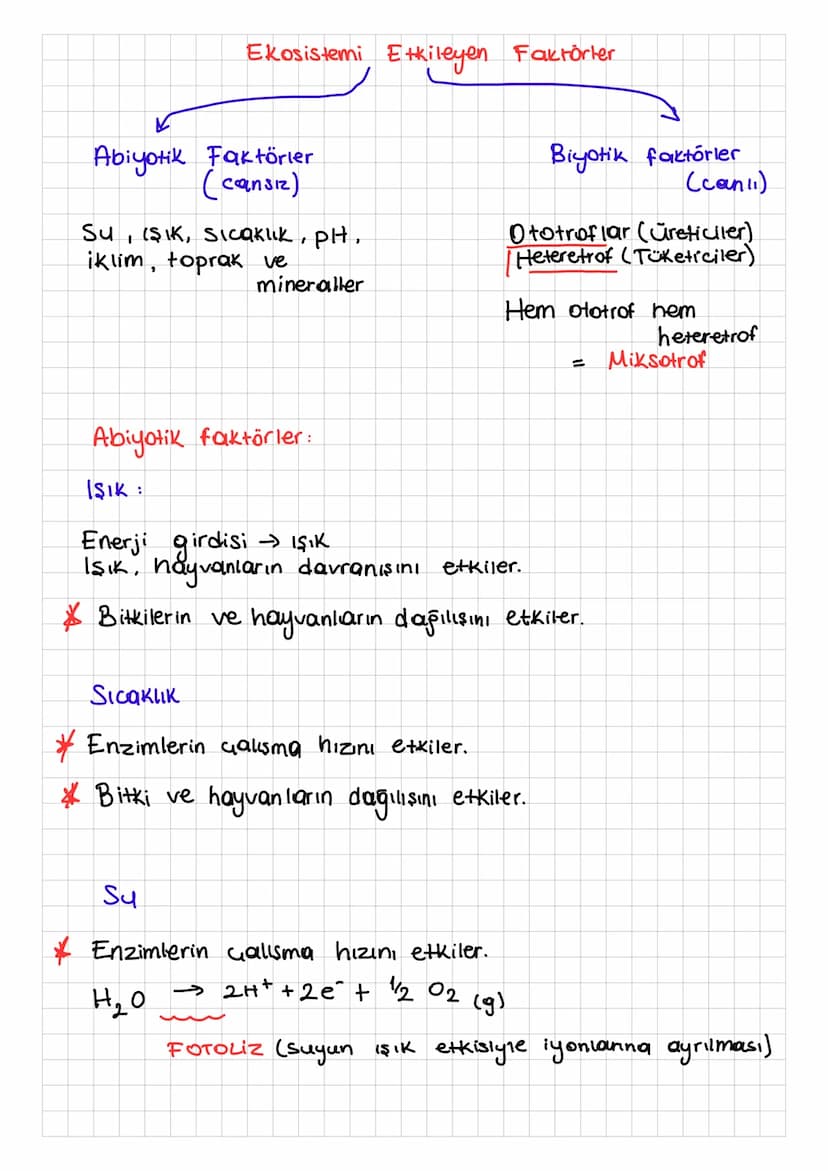 Ekosistemi Etkileyen Faktörler
Abiyotik Faktörler
(cansız)
Su, ışık, sıcaklık, pH,
iklim, toprak ve
mineraller
Biyotik faktörler
(canlı)
Ototroflar (Üreticiler)
Heteretrof (Tüketiciler)
Hem ototrof hem
heteretrof
= Miksotrof
Abiyotik faktörler:
Işık:
Enerji girdisi → ışık
Işık, hayvanların davranışını etkiler.
* Bitkilerin ve hayvanların dağılışını etkiler.
Sıcaklık
* Enzimlerin çalışma hızını etkiler.
* Bitki ve hayvanların dağılışını etkiler.
Su
* Enzimlerin çalışma hızını etkiler.
H₂O → 2H⁺ + 2e⁻ + 1/2 O₂ (g)
FOTOLİZ (suyun ışık etkisiyle iyonlarına ayrılması)